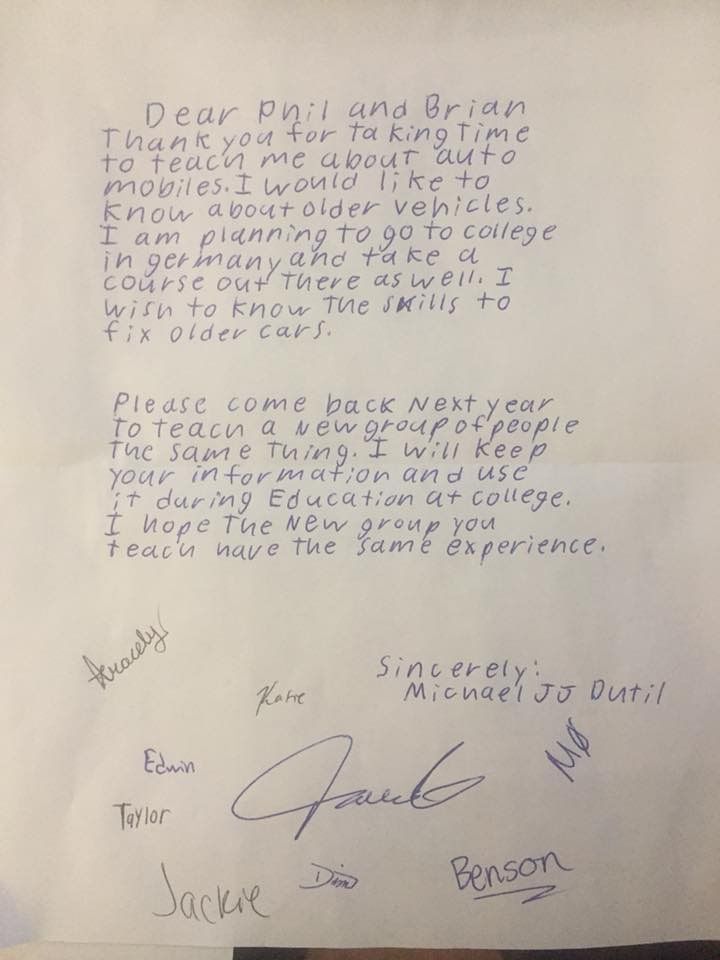 Dear Phil and Brian
Thank you for taking time
to teach me about auto
mobiles. I would like to
know about older vehicles.
I am planning to go to college
in germany and take a
course out there as well. I
wish to know the skills to
fix older cars.
Please come back Next year
to teach a New group of people
the same thing. I will keep
your information and use
it during Education at college.
I hope the New group you
teach have the same experience.
Sincerely:
Michael JJ Dutil
Aracely
Katie
Edwin
Taylor
Jackie
Benson